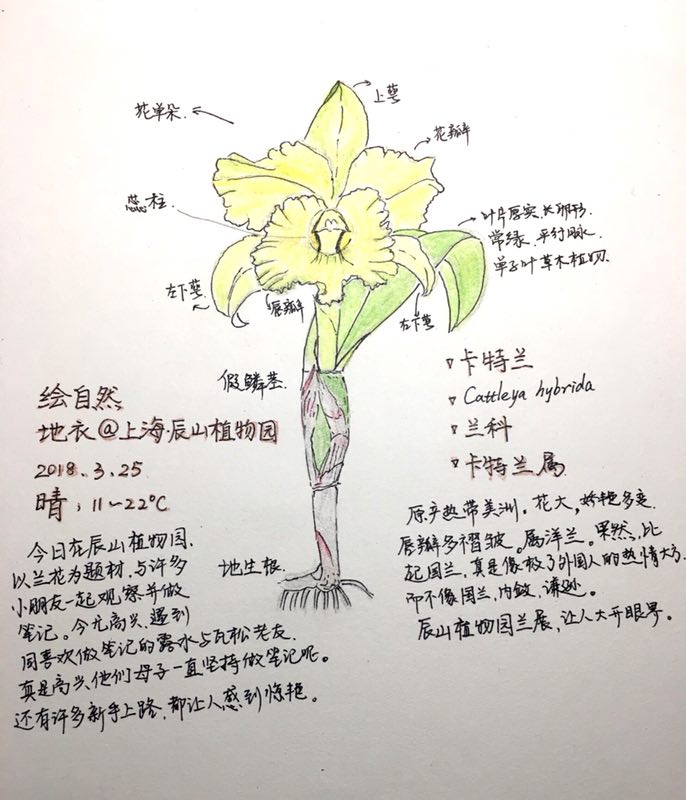 上萼
花单朵
花瓣
蕊柱
叶片厚实,长卵形.
常绿.平行脉.
单子叶草本植物.
左下萼
唇瓣
右下萼
假鳞茎.
卡特兰
Cattleya hybrida
兰科
卡特兰属
绘自然
地衣@上海辰山植物园
2018.3.25
晴,11~22℃
原产热带美洲。花大,娇艳多变.
唇瓣多褶皱。属洋兰。果然,比
起国兰,真是像极了外国人的热情大方.
而不像国兰,内敛,谦逊。
辰山植物园兰展,让人大开眼界。
今日在辰山植物园.
以兰花为题材.与许多
小朋友一起观察并做
笔记。今尤高兴,遇到
同喜欢做笔记的露水与瓦松老友.
真是高兴他们母子一直坚持做笔记呢。
还有许多新手上路,都让人感到惊艳。
地生根.